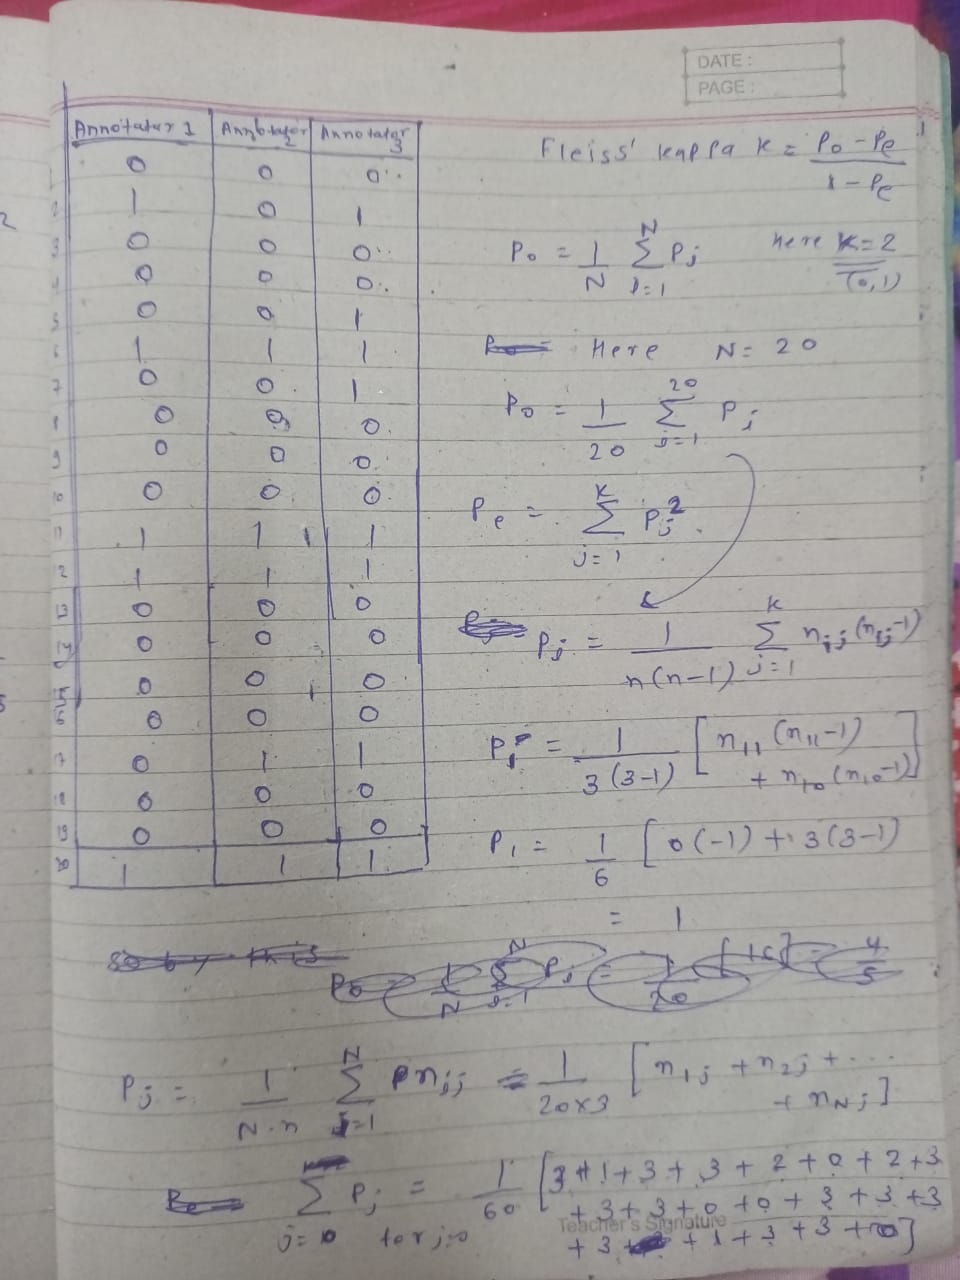 DATE :
PAGE :
Annotator 1 | Annotator 2 | Annotator 3
1 0 0 0
2 1 0 1
3 0 0 0
4 0 0 0
5 0 0 1
6 1 1 1
7 0 0 1
8 0 0 0
9 0 0 0
10 0 0 0
11 1 1 1
12 1 1 1
13 0 0 0
14 0 0 0
15 0 0 0
16 0 0 0
17 0 1 1
18 0 0 0
19 0 0 0
20 1 1 1
Fleiss' kappa K = (Po - Pe) / (1 - Pe)
Po = 1/N Σ_{i=1}^{N} Pi Here K=2
(0,1)
Here N = 20
Po = 1/20 Σ_{i=1}^{20} Pi
Pe = Σ_{j=1}^{K} Pj²
Pi = 1/(n(n-1)) Σ_{j=1}^{K} nij (nij-1)
P1 = 1/(3(3-1)) [ n11 (n11-1)
+ n10 (n10-1)]
P1 = 1/6 [ 0(-1) + 3(3-1)
= 1
Pj = 1/(N.n) Σ_{i=1}^{N} nij = 1/(20x3) [ n1j + n2j + ....
+ nNj ]
Σ_{j=0} Pj = 1/60 [3+1+3+3+2+0+2+3
for j=0 +3+3+0+0+3+3+3
Teacher's Signature
+3+1+3+3+0]